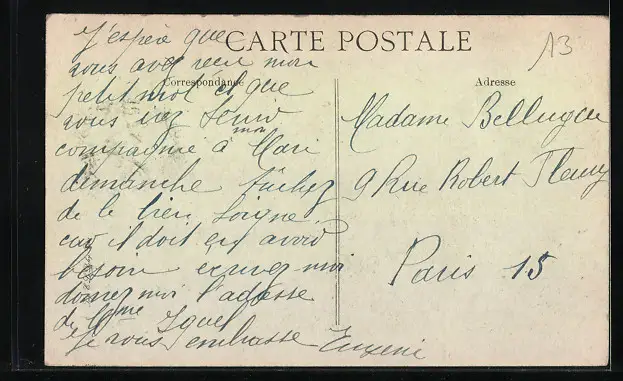 CARTE POSTALE
13
Correspondance
Adresse
J'espère que
vous avez reçu mon
petit mot et que
vous irez tenir
compagnie à mon Mari
dimanche tâchez
de le bien soigner
car il doit en avoir
besoin ecrivez moi
donnez moi l'adresse
de Mme
Je vous embrasse Eugenie
Madame
9 Rue Robert Fleury
Paris 15